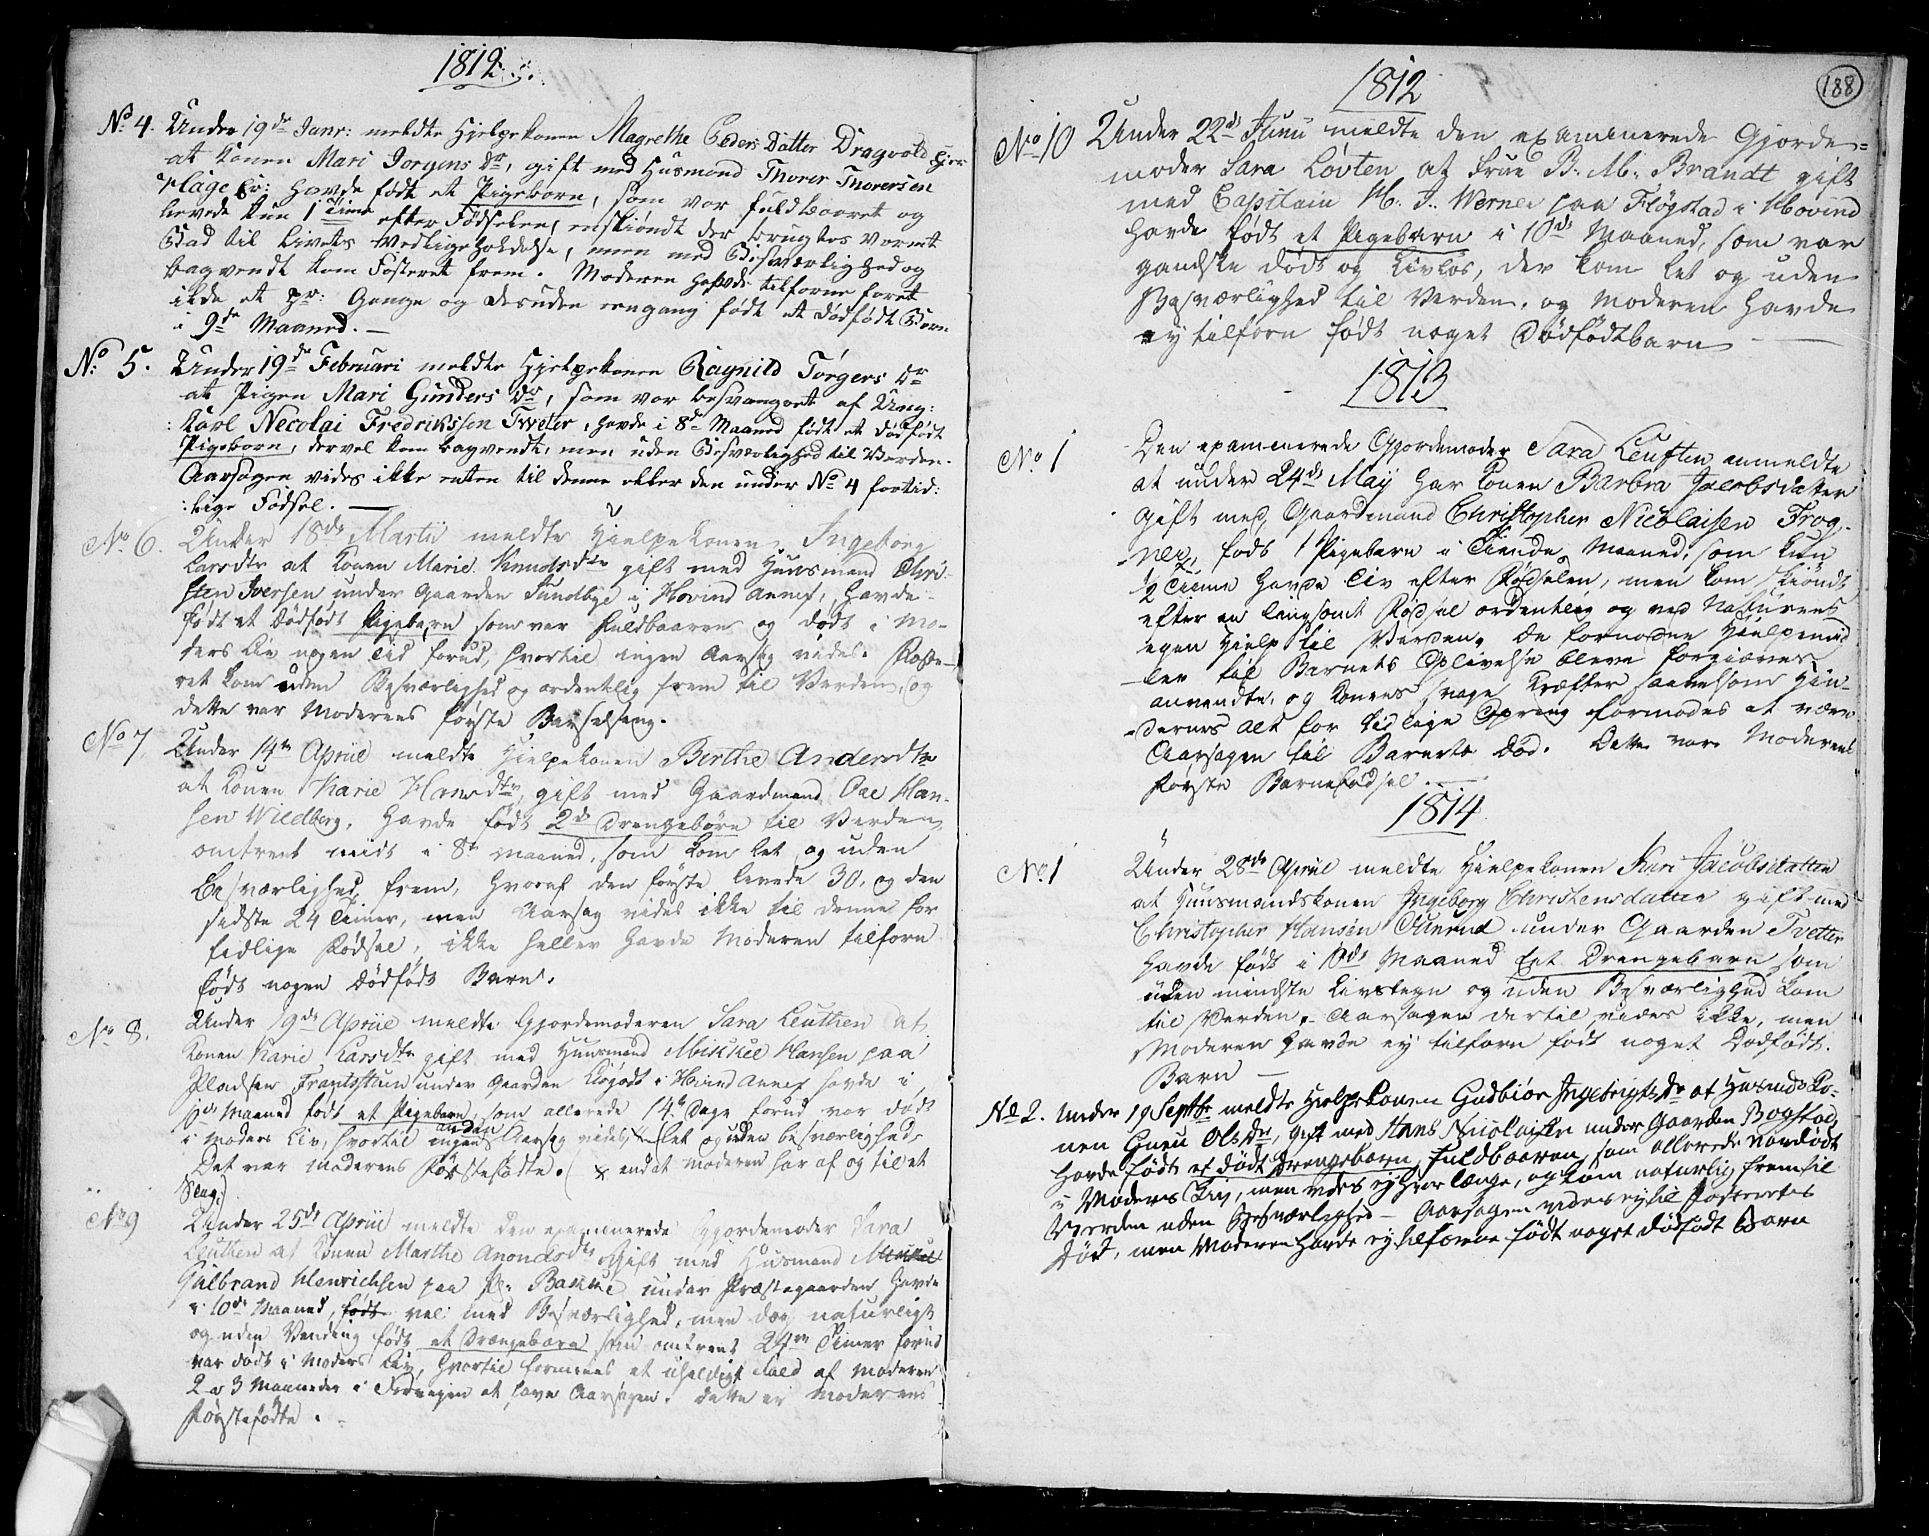 1812
No 4. Under 19de Janr: meldte Hjelpekonen Magrethe Peders Datter Dragvold
at Konen Mari Jorgens Dr, gift med Husmand Thorer Thorersen
havde født et Pigebørn, som var fuldbaaret og
levede kun 1 Time efter Fødselen, enskiøndt der brugtes varmt
Bad til Livets Vedligeholdelse, men med Besværlighed og
bagvendt kom Fosteret frem. Moderen havde tilforne foret
ilde et pr: Gange og desuden eengang født et dødfødt Børn
i 9de Maaned. —
No: 5. Under 19de Februari meldte Hjelpekonen Ragnild Torgers Dr
at Pigen Mari Gunders Dr, som var besvangret af Ung:
Karl Necolai Fredrikssen Tveter, havde i 8de Maaned født et dødfødt
Pigeborn, der vel kom bagvendt, men uden Besværlighed til Verden.
Aarsagen vides ikke enten til denne eller den under No 4 fortid:
:lige Fødsel. —
No 6. Under 18de Martii meldte Hielpekonen Ingeborg
Larsdtr at Konen Marie Knudsdtr gift med Huusmand Chri-
sten Iversen under Gaarden Sundbye i Hovind Annex, havde
født et dødfødt Pigebarn som var fuldbaaren og dødt i Mo-
ders Liv nogen Tid forud, hvortil ingen Aarsag vides. Foste-
ret kom uden Besværlighed og ordentlig frem til Verden, og
dette var Moderens første Barselseng.
No 7 Under 14de Apriil meldte Hielpekonen Berthe Andersdtr
at Konen Karie Hansdtr, gift med Gaardmand Ole Han-
sen Wiedberg, havde født 2de Drengebørn til Verden,
omtrent midt i 8de Maaned, som kom let og uden
Besværlighed frem, hvoraf den første levede 30, og den
sidste 24 Timer, men Aarsag vides ikke til denne for
tidlige Fødsel, ikke heller havde Moderen tilforn
født nogen dødfødt Barn.
No 8. Under 19de Apriil meldte Gjordemoderen Sara Leuthen at
Konen Karie Larsdtr gift med Huusmand Mikkel Hansen paa
Pladsen under Gaarden i Hovind Annex havde i
10de Maaned født et Pigebarn, som allerede 14 Dage forud var dødt
i Moders Liv, hvortil ingen anden Aarsag vides, let og uden besværlighed.
Det var moderens førstefødte. (x end at moderen har af og til et
Slag.)
No 9 Under 25de Apriil meldte den examinerede Gjordemoder Sara
Leuthen at Konen Marthe Amondsdtr gift med Husmand Mikkel
Gulbrand Henrichsen paa Pl: Bakke under Præstegaarden, havde
i 10de Maaned, født vel med Besværlighed, men dog naturligt
og uden Vending født et Drengebarn, som omtrent 24re Timer forud
var dødt i Moders Liv, hvortil formenes et uheldigt Fald af Moderen
2 a 3 Maaneder i Forveien at have Aarsagen. Dette er Moderens
førstefødte.
1812
188
No 10 Under 22de Junii meldte den examinerede Gjorde-
moder Sara Løvten at Frue B. M. Brandt gift
med Capitain H. J. Werner paa Fløgstad i Hovind
havde født et Pigebarn i 10de Maaned, som var
gandske dødt og Livløs, der kom let og uden
Besværlighed til Verden, og Moderen havde
ey tilforn født noget Dødfødtbarn —
1813
No 1 Den examinerede Gjordemoder Sara Leuften anmeldte
at under 24de May har Konen Barbra Jacobsdatter
gift med Gaardmand Christopher Nicolaisen Frog-
ner, føds 1 Pigebarn i Tiende Maaned, som kun
1/2 Time havde Liv efter Fødselen, men kom skiøndt
efter en langsomt Fødsel ordentlig og ved Naturens
egen Hielp til Verden. De fornødne Hielpemid
ler til Barnets Oplivelse bleve forgiæves
anvendte, og Konens svage Kræfter saavelsom Hin-
dernes alt for tidlige Spring formodes at være
Aarsagen til Barnets Død. Dette var Moderens
første Barnefødsel. —
1814
No 1 Under 28de Apriil meldte Hielpekonen Kari Jacobsdatter
at Huusmandskonen Ingeborg Christensdatter gift med
Christopher Hansen under Gaarden Tvetter
havde født i 10de Maaned Eet Drengebarn som
uden mindste Livstegn og uden Besværlighed kom
til Verden. Aarsagen dertil vides ikke, men
Moderen havde ey tilforn født noget Dødfødt
Barn —
No 2. Under 19 Septbr meldte Hielpekonen Gudbiør Ingebrigts Dr at Husmds Ko-
nen Guru Ols Dr, gift med Hans Nicolaisen under Gaarden Bogstad,
havde født et dødt Drengebarn, fuldbaaren, som allerede var dødt
i Moders Liv, men vides ej hvor længe, og kom naturlig frem til
Verden uden Besværlighed — Aarsagen vides ej til Fosterets
Død, men Moderen havde ej tilforne født noget dødfødt Barn